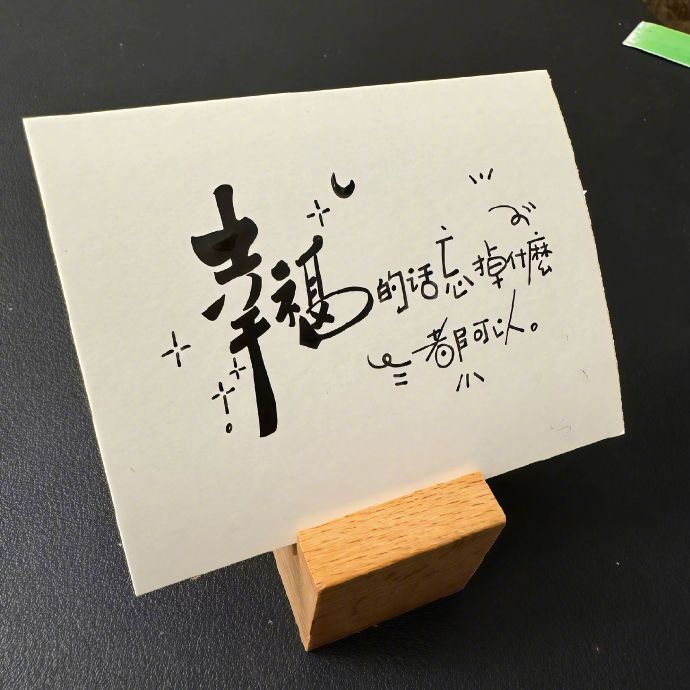 幸福的话忘掉什麼
都可以。